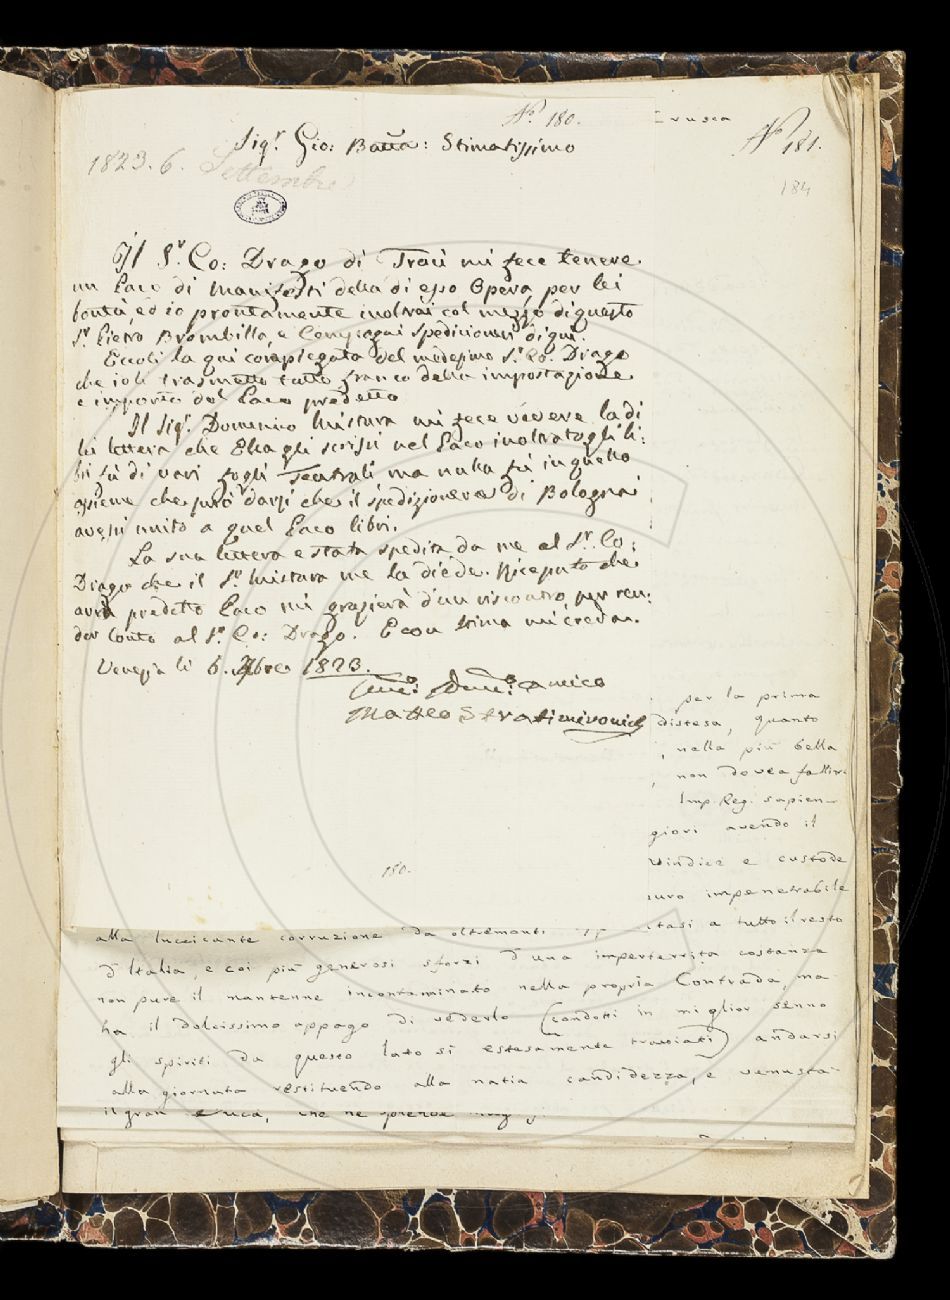 N.° 180.
Sig.r Gio: Batta: Stimatissimo
1823. 6. Settembre
Il S.r Co: Drago di Traù mi fece tenere
un Paco di Manifesti della di esso Opera, per lei
ed io prontamente inoltrai col mezzo di questo
S.r Pietro Brambilla, e Compagni Spedizionieri di qui.
Eccoli la qui compiegata del medesimo S.r Co. Drago
che io li trasmetto tutto franco della impostazione
e importo del Paco predetto
Il Sig.r Domenico Mistura mi fece vedere la di
lei lettera che Ella gli scrisse nel Paco inoltratogli li:
di vari fogli Teatrali, ma nulla fù in quello
assieme che può darsi che il spedizioniere di Bologna
avessi unito a quel Paco libri.
La sua lettera e stata spedita da me al S.r Co:
Drago che il S.r Mistura me la diede. Riceputo che
avrà predetto Paco mi grazierà d'un riscontro, per ren:
der conto al S.r Co: Drago. E con stima mi creda.
Venezia li 6. 7bre 1823.
amico
Matteo Stratimirovich
180.
Crusca
N.° 181.
184
per la prima
distesa, quanto
nella più bella
non dovea fallire
Imp. Reg. sapien-
giori avendo il
vindice e custode
muro impenetrabile
tasi a tutto il resto
alla luccicante corruzione da oltremonti
d'Italia, e coi più generosi sforzi d'una imperterrita costanza
non pure il mantenne incontaminato nella propria Contrada, ma
ha il dolcissimo appago di vederlo (condotti in miglior senno
gli spiriti da questo lato sì estesamente traviati) andarsi
alla giornata restituendo alla natia candidezza, e venustà
il gran che ne